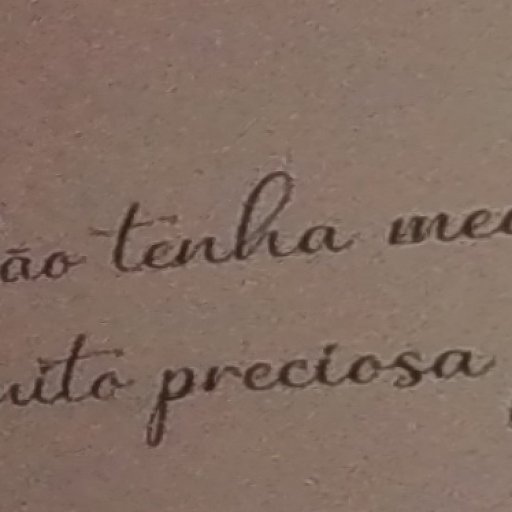 ão tenha me
uito preciosa